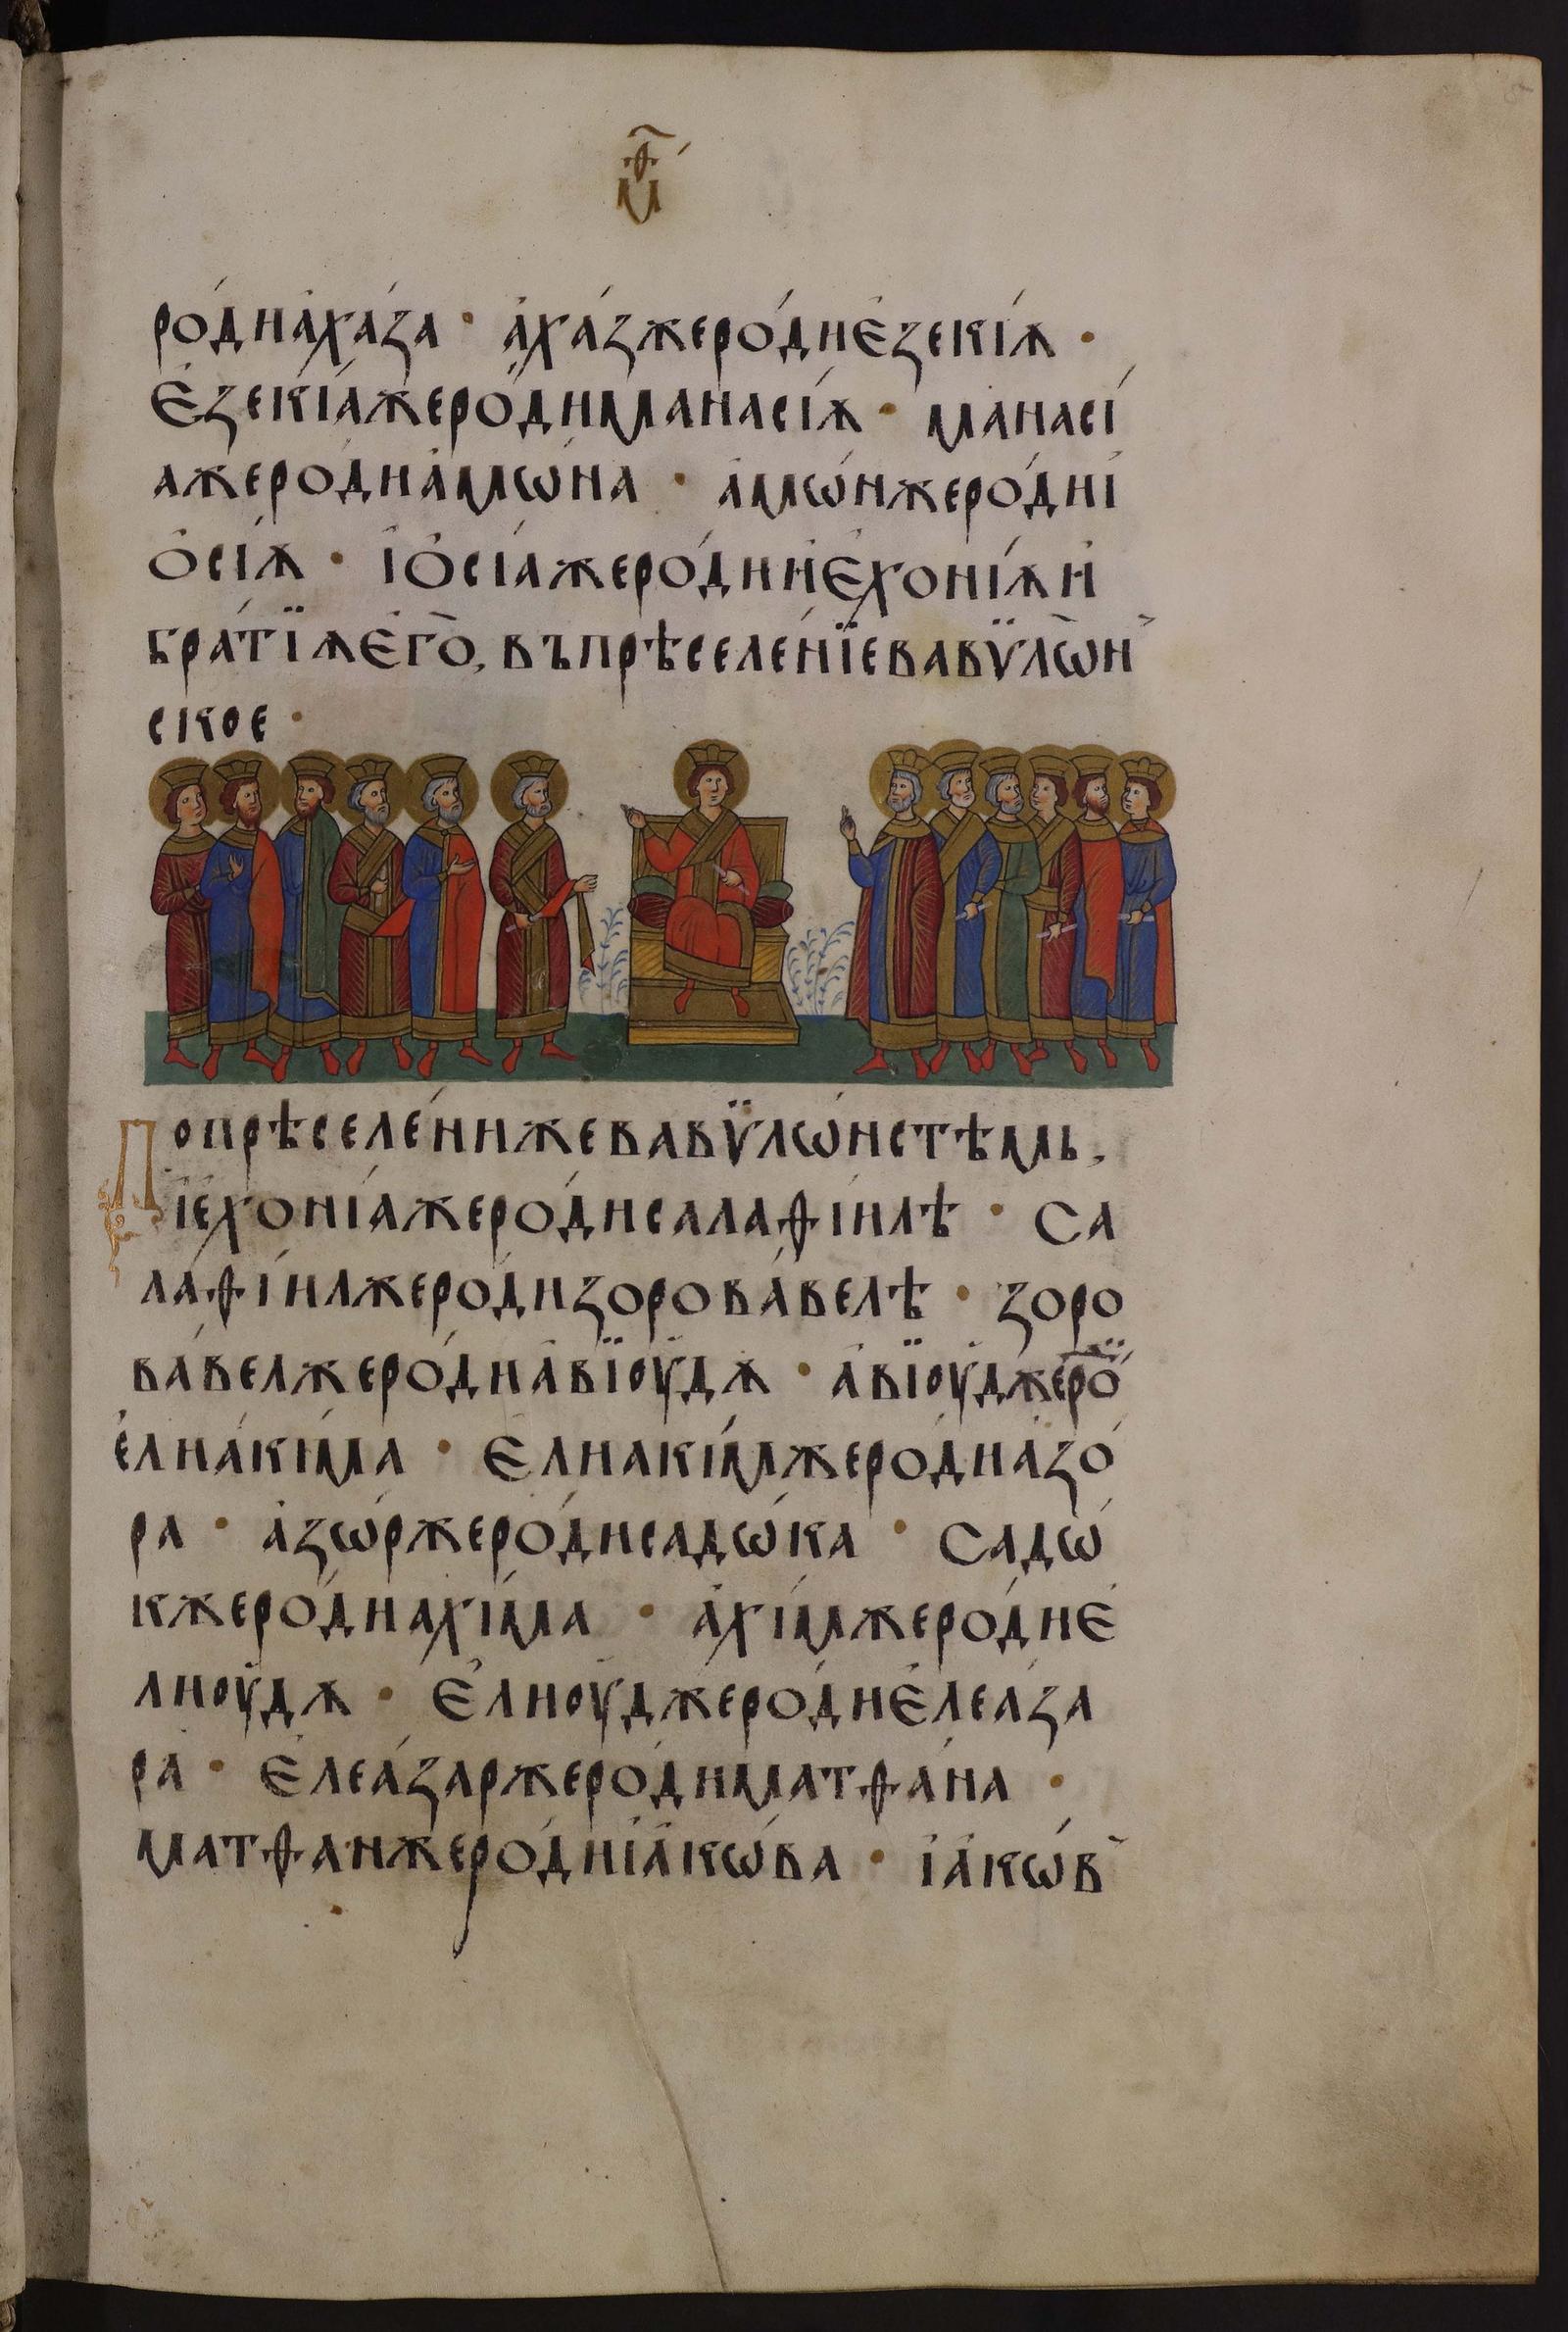 мѳ҃
ро́дꙇа҆ха́за · а҆ха́зжеро́дꙇе҆зекі́ѫ ·
Е҆зекі́ажеро́дꙇманасі́ѫ · манасі́
ажеро́дꙇа҆мѡ́на · а҆мѡ́нжеро́дꙇі҆
о҆сі́ѫ · і҆о҆сі́ажеро́дꙇи҆е҆хоні́ѫи҆
бра́тїѫе҆го̀, въпрѣселе́нїевавѷлѡ̀н
ское ·
Попрѣселе́нижевавѷлѡ́нстѣмь,
і҆ехоні́ажеро́дисалаѳі́илѣ · Са
лаѳі́илжеро́дизорова́велѣ · зоро
ва́велжеро́диа҆вїꙋ́дѫ · а҆вїꙋ́джеро́
е҆лиа́кима · Е҆лиакі́мжеро́диа҆зо́
ра · а҆зѡ́ржеро́дисадѡ́ка · Садѡ́
кжеро́диахі́ма · а҆хі́мжеро́дие҆
лиꙋ́дѫ · Е҆лиꙋ́джеро́дие҆леаза
ра · Е҆леа́заржеро́диматѳа́на ·
матѳанжеро́диі҆а҆кѡ́ва · і҆а҆кѡ́в